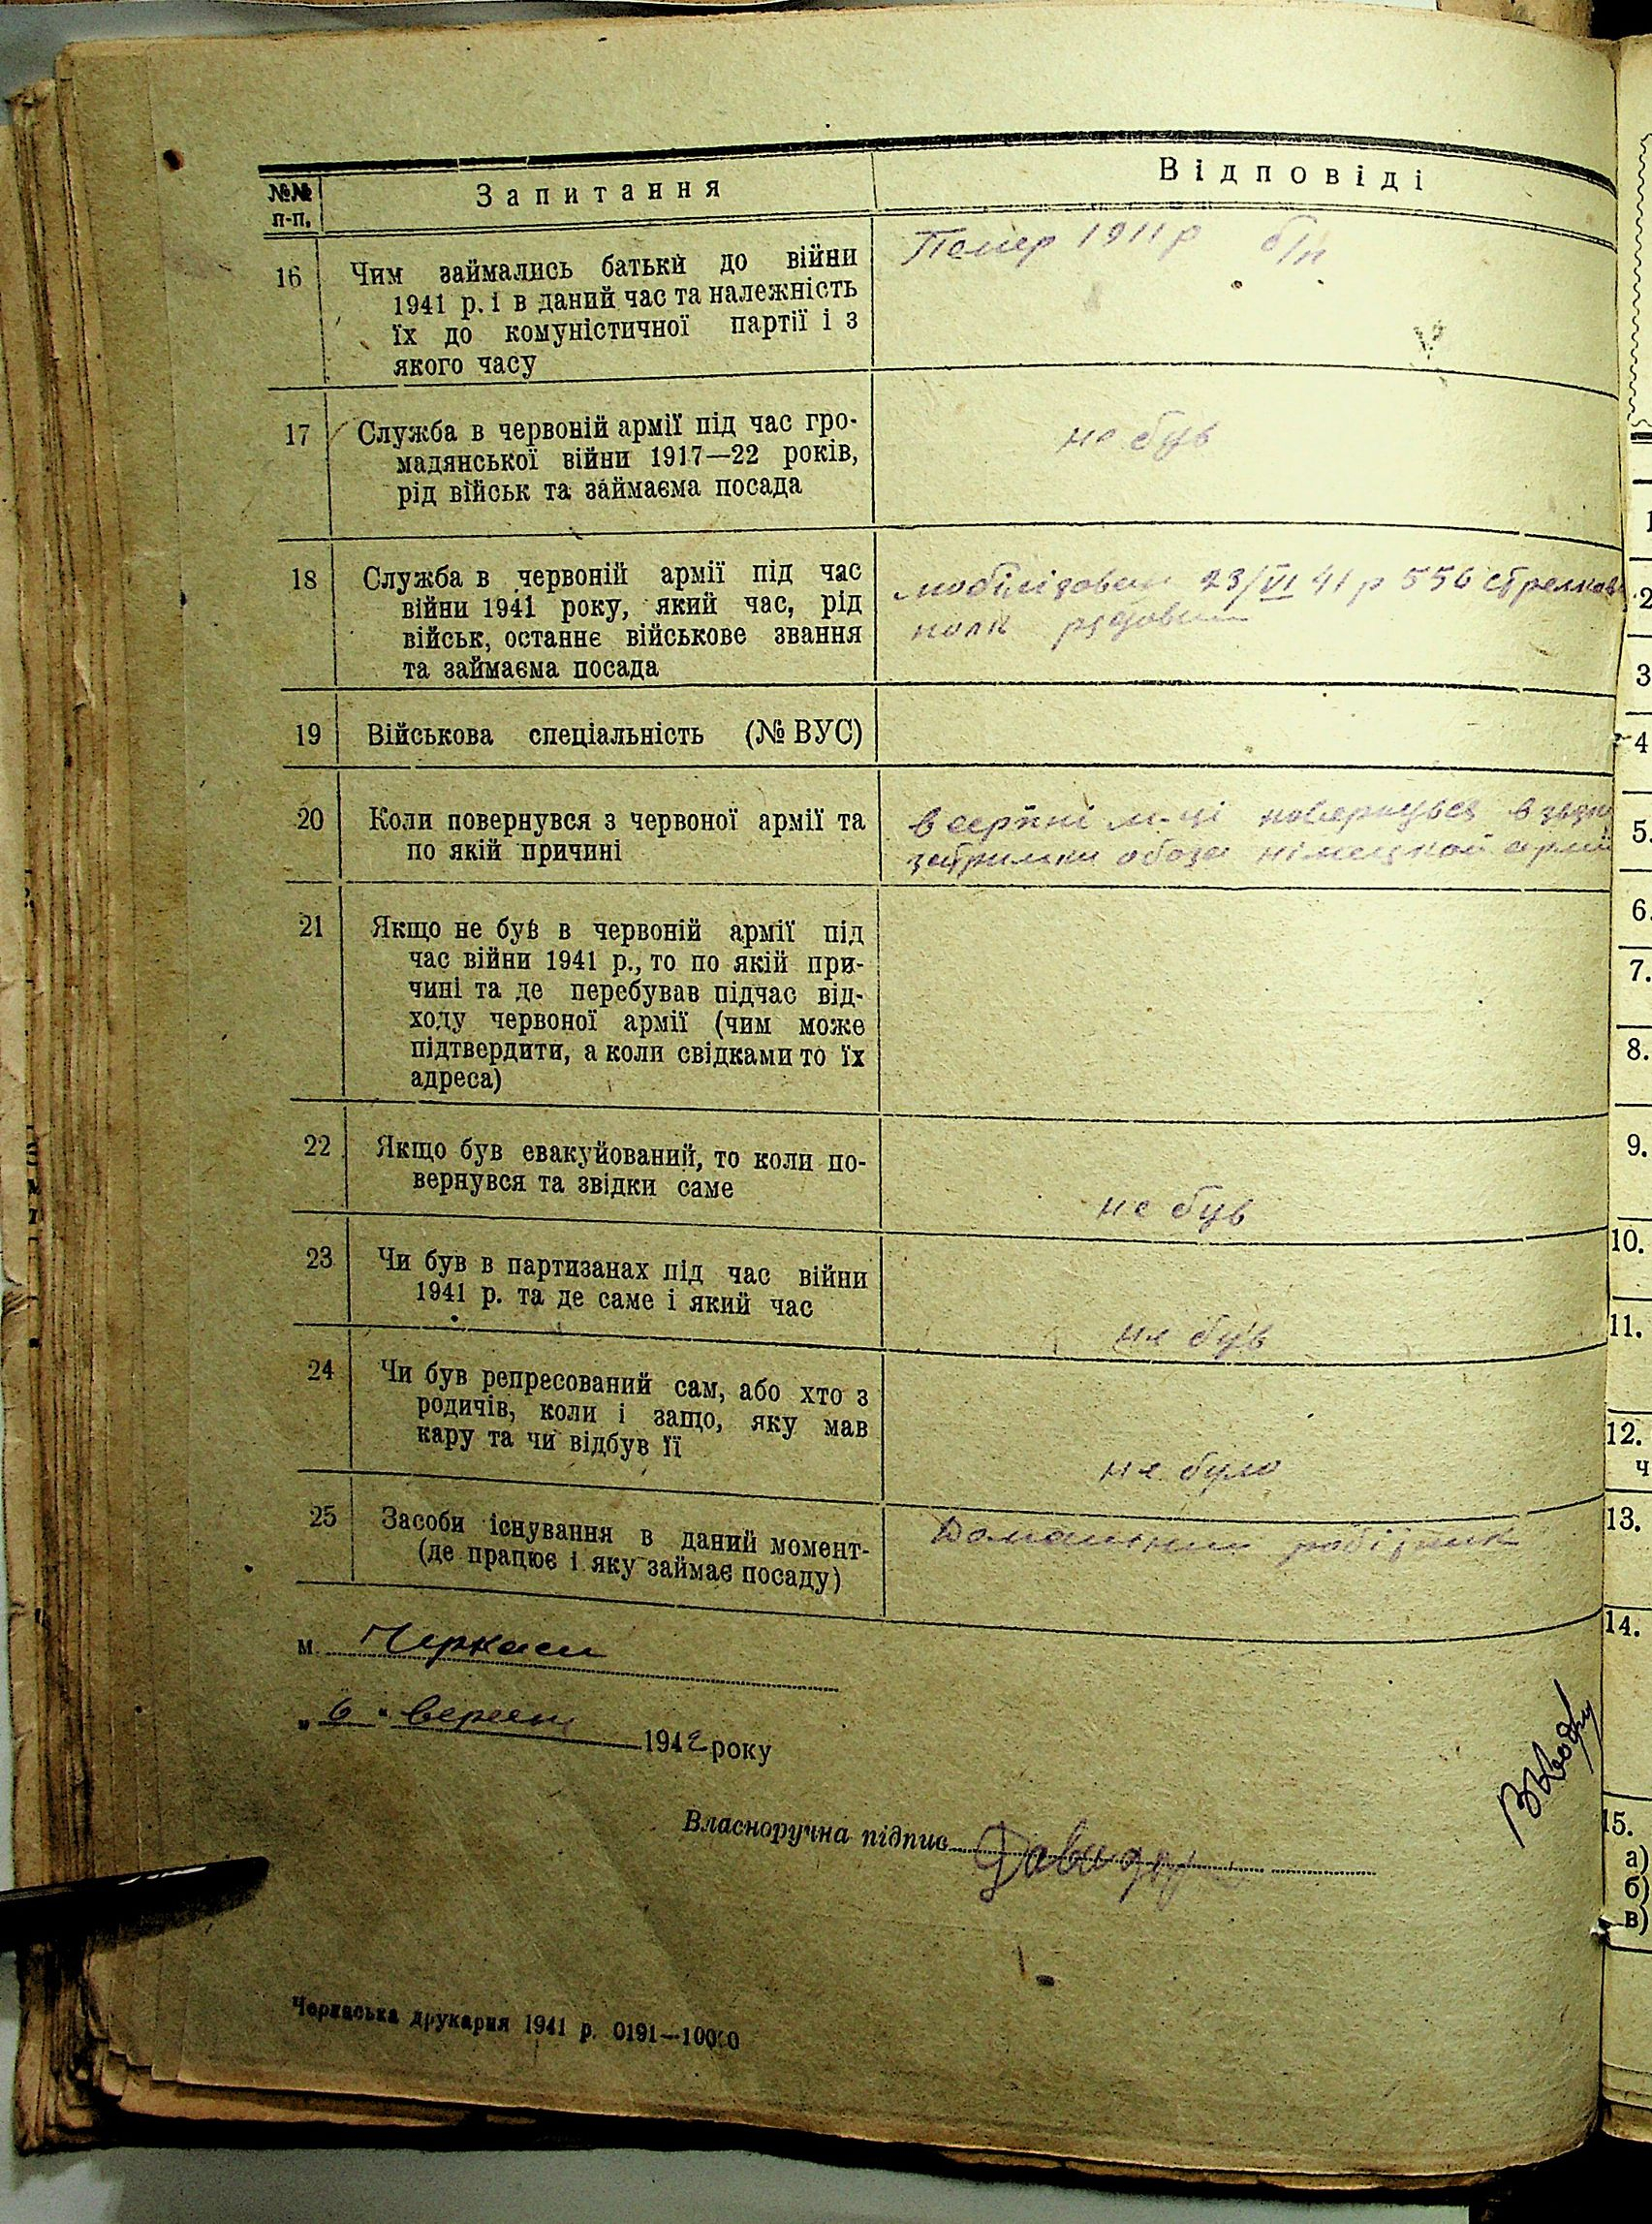 №№ п-п.
Запитання
Відповіді
16
Чим займались батьки до війни
1941 р. і в даний час та належність
їх до комуністичної партії і з
якого часу
Помер 1911 р б/п
17
Служба в червоній армії під час гро-
мадянської війни 1917—22 років,
рід військ та займаєма посада
не був
18
Служба в червоній армії під час
війни 1941 року, який час, рід
військ, останнє військове звання
та займаєма посада
мобілізован 23/VI 41 р 556 стрелков
полк рядовим
19
Військова спеціальність (№ ВУС)
20
Коли повернувся з червоної армії та
по якій причині
в серпні м-ці повернувся в
затримки обоза німецкой армії
21
Якщо не був в червоній армії під
час війни 1941 р., то по якій при-
чині та де перебував підчас від-
ходу червоної армії (чим може
підтвердити, а коли свідками то їх
адреса)
22
Якщо був евакуйований, то коли по-
вернувся та звідки саме
не був
23
Чи був в партизанах під час війни
1941 р. та де саме і який час
не був
24
Чи був репресований сам, або хто з
родичів, коли і защо, яку мав
кару та чи відбув її
не було
25
Засоби існування в даний момент-
(де працює і яку займає посаду)
Домашний робітник
м. Черкаси
„ 6 " вересн 1942 року
Власноручна підпис
Черкаська друкарня 1941 р. 0191—10000
2
3
4
5.
6.
7.
8.
9.
10.
11.
12.
ч
13.
14.
15.
а)
б)
в)